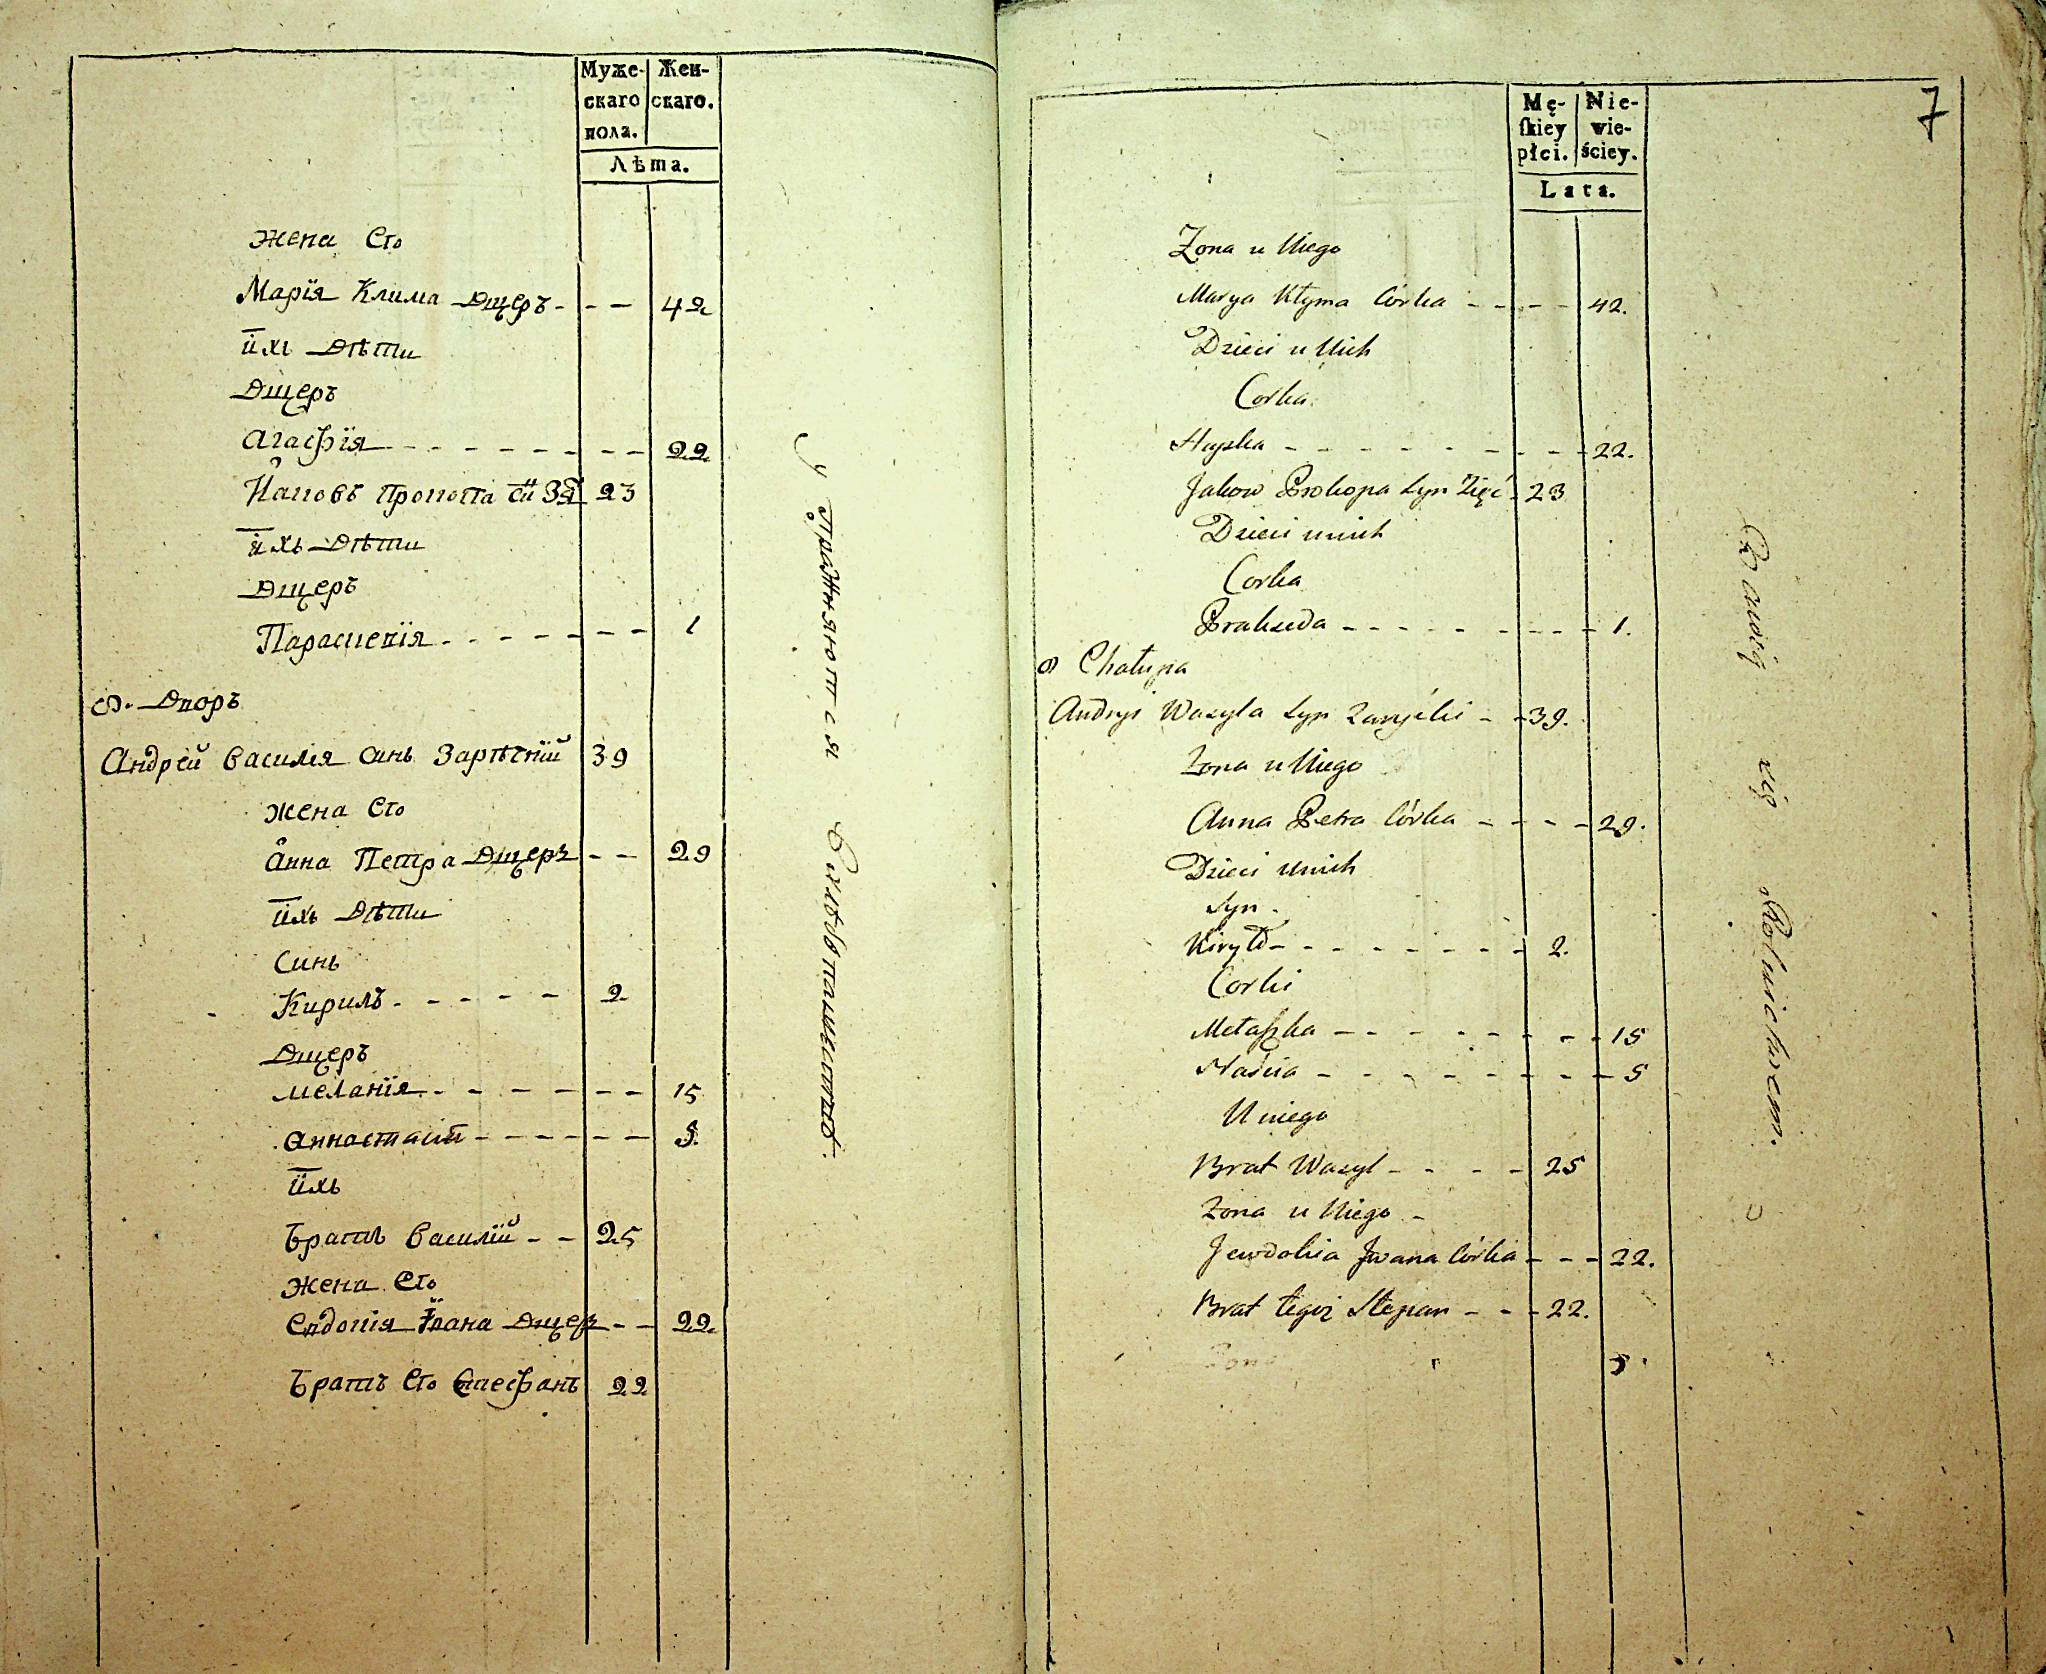 Муже-
скаго
пола.
Жен-
скаго.
Лѣта.
жена Его
Марїя Клима Дщеръ - - - 42
ихъ Дѣти
Дщеръ
Агафїя - - - - - - - - 22.
Яковъ Прокопа Зя 23
ихъ Дѣти
Дщеръ
Параскевїя - - - - - - - 1
8. Дворъ
Андрей Василїя Синъ Зарѣскїй 39
жена Его
Анна Петра Дщеръ - - 29
ихъ Дѣти
Синъ
Кирилъ - - - - - 2
Дщеръ
меланїя - - - - - - - 15
Аннастасїя - - - - - - 5.
ихъ
Братъ Василїй - - 25
жена Его
Евдокїя Ивана Дщеръ - - 22.
Братъ Его Стефанъ 22
Упражняются
Хлѣбопашествѣ.
7
Mę-
skiey
płci.
Nie-
wie-
ściey.
Lata.
Zona u Niego
Marya Kłyma Córka - - - - 42.
Dzieci u Nich
Corka.
Hapka - - - - - - - - - 22.
Jakow Prokopa Syn Zięć - 23
Dzieci u nich
Corka
Prakseda - - - - - - - - - 1.
8 Chałupa
Andryi Wasyla Syn Zaryécki - - 39.
Zona u Niego
Anna Petra Córka - - - - 29.
Dzieci u nich
Syn.
Kiryło - - - - - - - - 2.
Corki
Mełaszka - - - - - - - - 15
Naścia - - - - - - - - 5
U niego
Brat Wasyl - - - - 25
Zona u Niego -
Jewdokia Jwana Córka - - - 22.
Brat tegoż Stepan - - - 22.
Zona
Bawią się Rolnictwem.